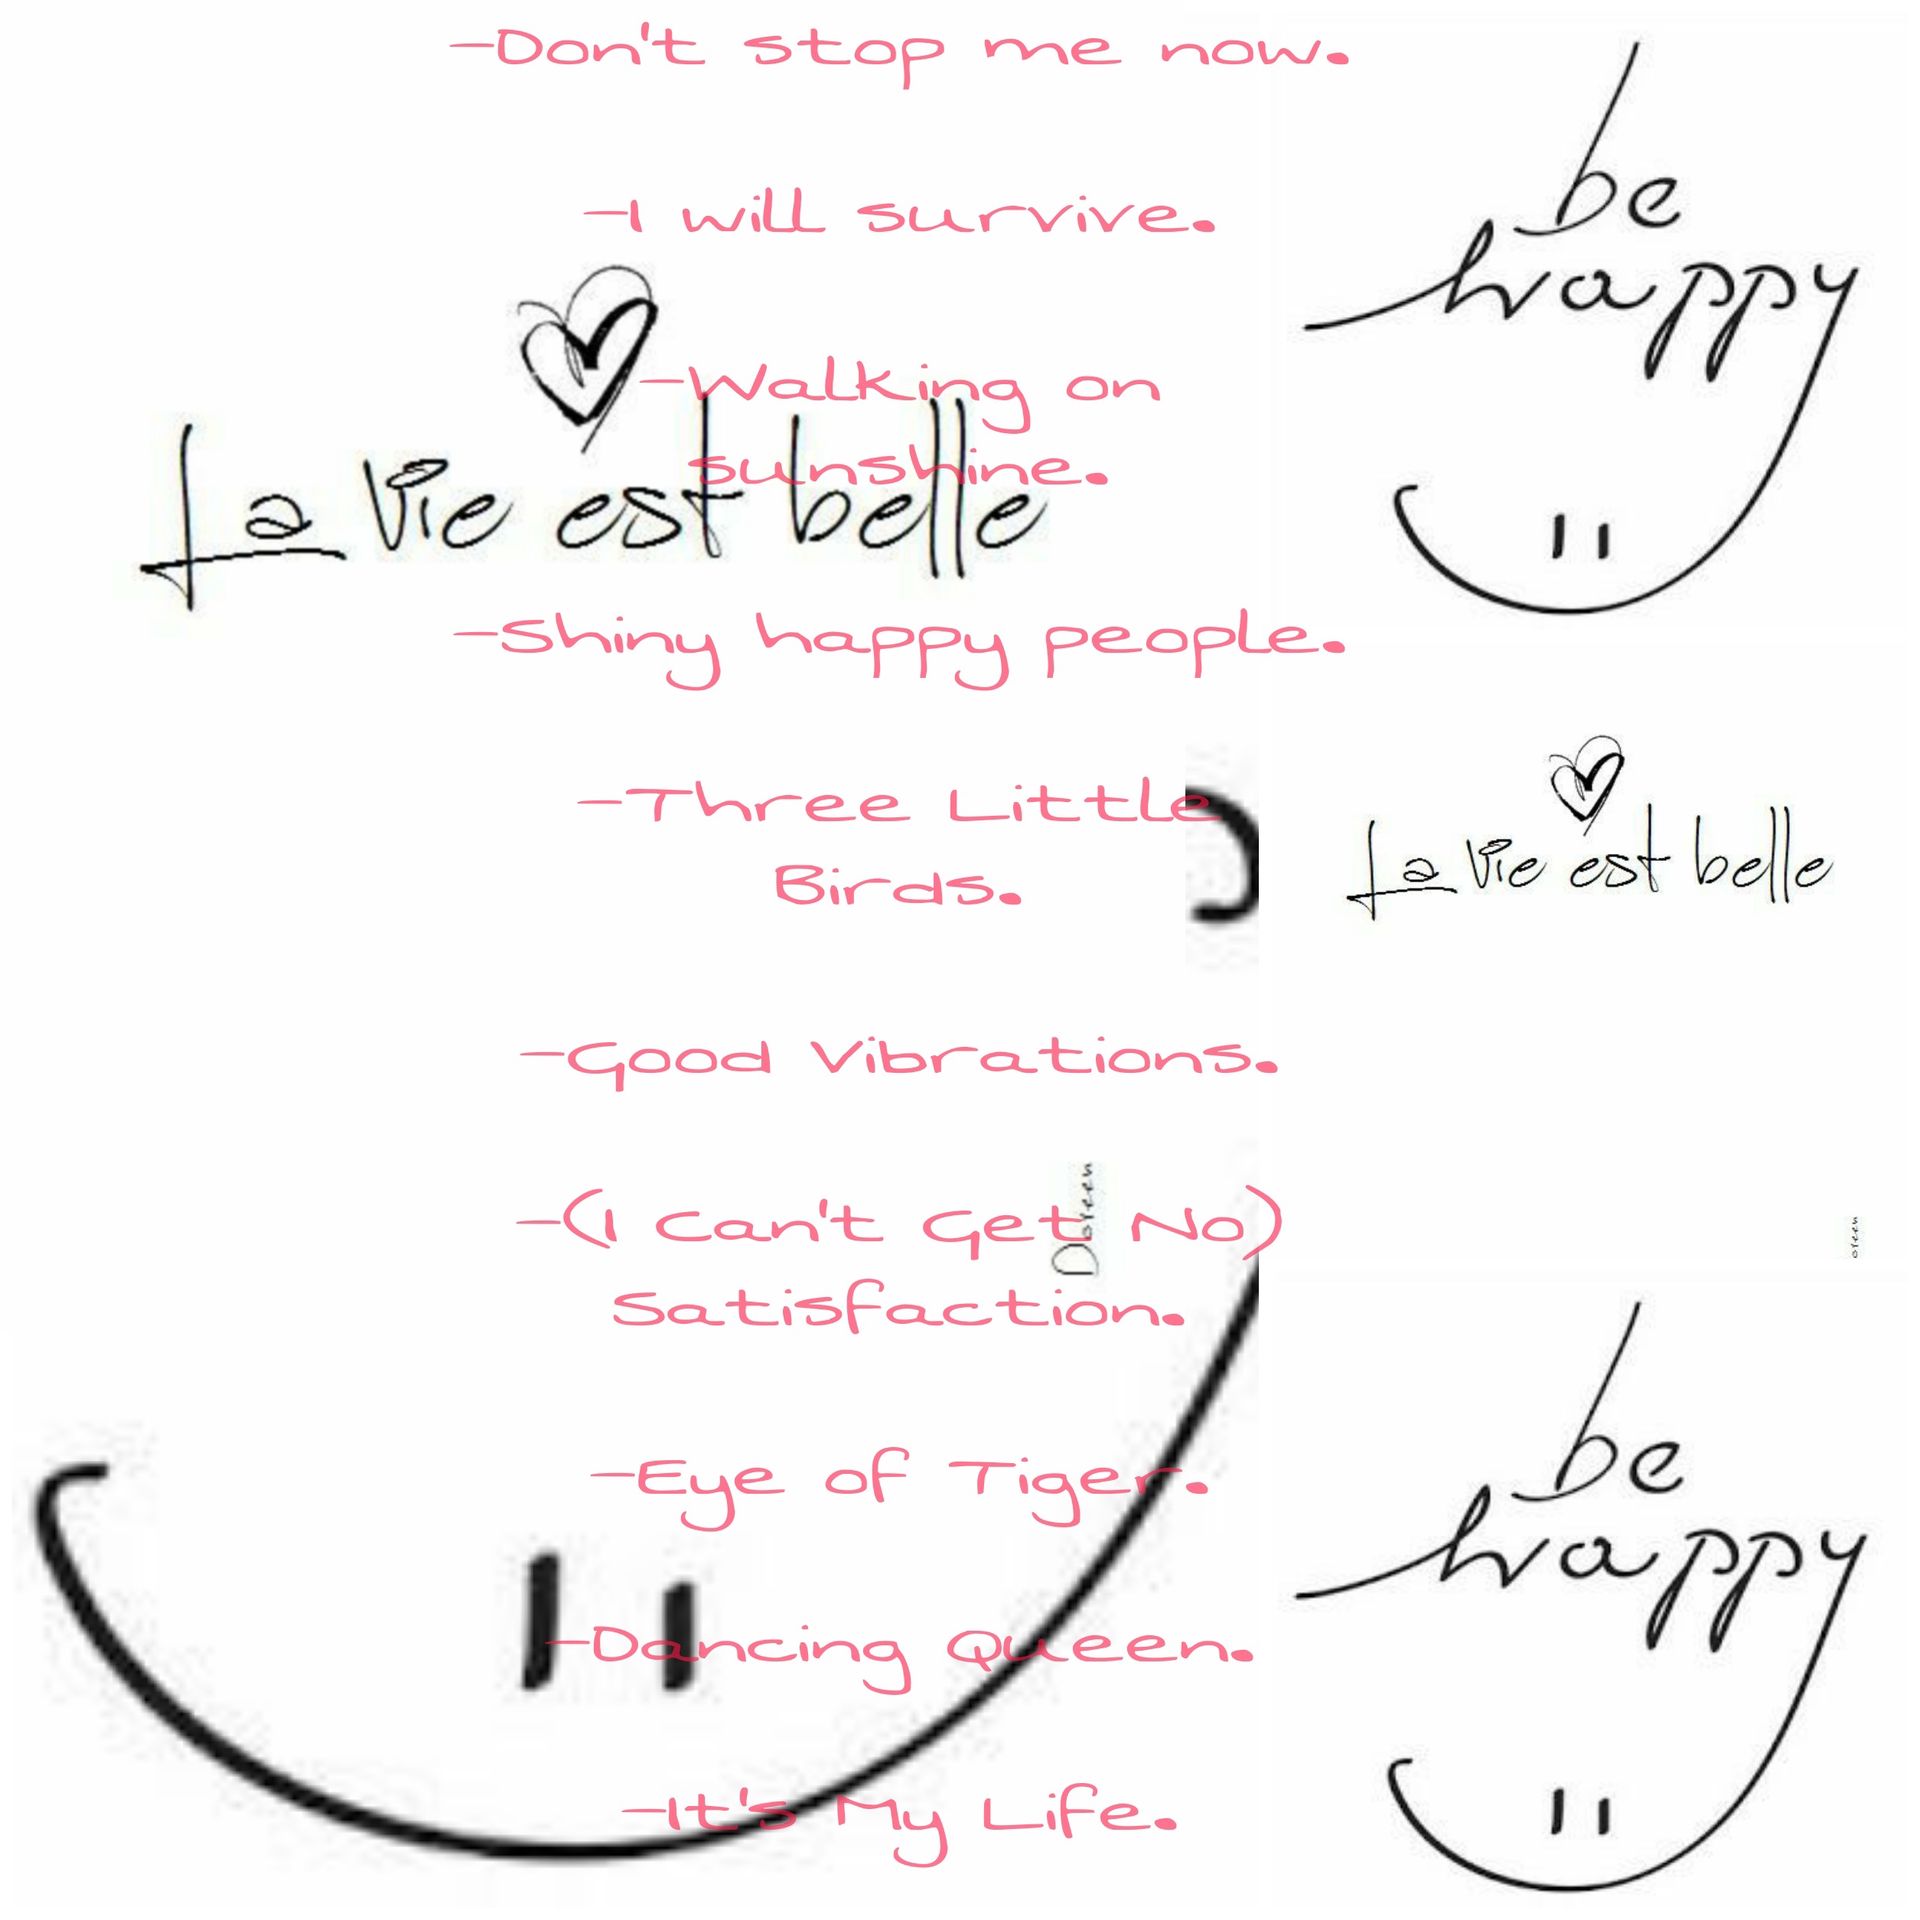 -Don't stop me now.
-I will survive.
-Walking on
sunshine.
-Shiny happy people.
-Three Little
Birds.
-Good Vibrations.
-(I Can't Get No)
Satisfaction.
-Eye of Tiger.
-Dancing Queen.
-It's My Life.
La vie est belle
Doreen
be
happy
La vie est belle
oreen
be
happy